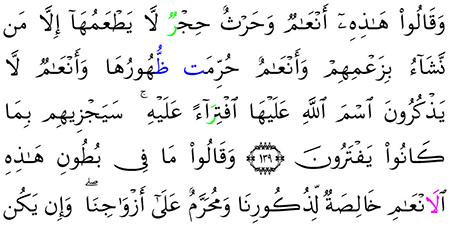 وَقَالُوا۟ هَٰذِهِۦٓ أَنْعَٰمٌ وَحَرْثٌ حِجْرٌ لَّا يَطْعَمُهَآ إِلَّا مَن
نَّشَآءُ بِزَعْمِهِمْ وَأَنْعَٰمٌ حُرِّمَت ظُّهُورُهَا وَأَنْعَٰمٌ لَّا
يَذْكُرُونَ اَسْمَ اَللَّهِ عَلَيْهَا اَفْتِرَآءً عَلَيْهِ ۚ سَيَجْزِيهِم بِمَا
كَانُوا۟ يَفْتَرُونَ ۝١٣٩ وَقَالُوا۟ مَا فِى بُطُونِ هَٰذِهِ
اِلَانْعَٰمِ خَالِصَةٌ لِّذُكُورِنَا وَمُحَرَّمٌ عَلَىٰٓ أَزْوَٰجِنَا ۖ وَإِن يَكُن